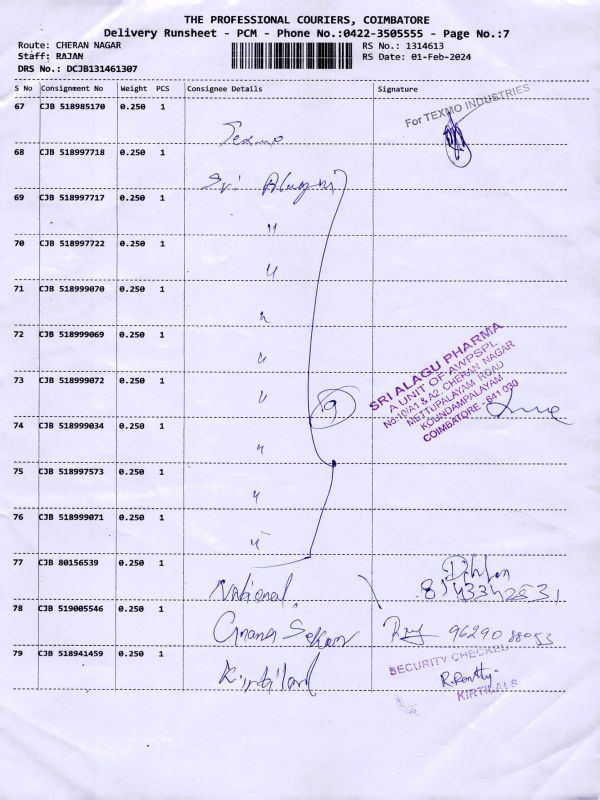 THE PROFESSIONAL COURIERS, COIMBATORE
Delivery Runsheet - PCM - Phone No.:0422-3505555 - Page No.:7
Route: CHERAN NAGAR RS No.: 1314613
Staff: RAJAN RS Date: 01-Feb-2024
DRS No.: DCJB131461307
S No Consignment No Weight PCS Consignee Details Signature
67 CJB 518985170 0.250 1
For TEXMO INDUSTRIES
Texmo
68 CJB 518997718 0.250 1
Sri Alagu
69 CJB 518997717 0.250 1
"
70 CJB 518997722 0.250 1
"
71 CJB 518999070 0.250 1
"
72 CJB 518999069 0.250 1
"
73 CJB 518999072 0.250 1
"
9
SRI ALAGU PHARMA
A UNIT OF AWPSPL
No:10/A1 & A2, CHERAN NAGAR
METTUPALAYAM ROAD
KOUNDAMPALAYAM
COIMBATORE - 641 030
74 CJB 518999034 0.250 1
"
75 CJB 518997573 0.250 1
"
76 CJB 518999071 0.250 1
"
77 CJB 80156539 0.250 1
National
78 CJB 519005546 0.250 1
Gnana Sekar
79 CJB 518941459 0.250 1
SECURITY CHECKED
Kirtilard
KIRTILALS